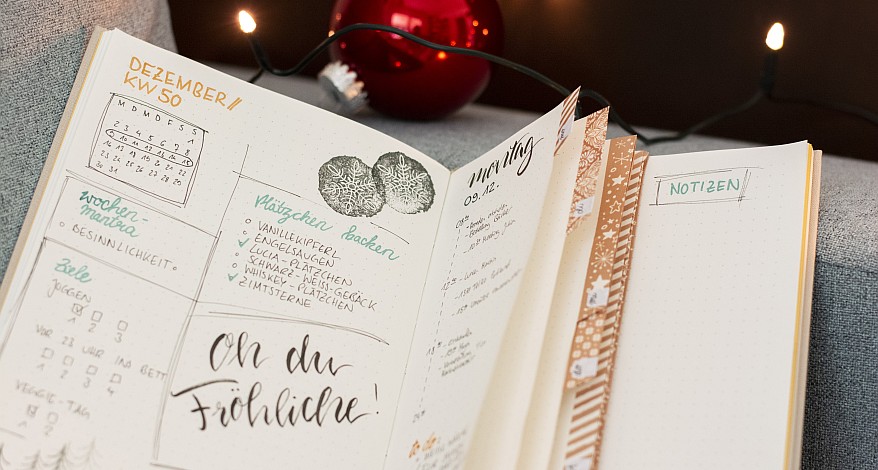 DEZEMBER//
KW 50
M D M D F S S
1
2 3 4 5 6 7 8
9 10 11 12 13 14 15
16 17 18 19 20 21 22
23 24 25 26 27 28 29
30 31
wochen-
mantra
BESINNLICHKEIT
Ziele
JOGGEN
1 2 3
VOR 23 UHR INS BETT
1 2 3 4
VEGGIE-TAG
1 2
Plätzchen backen
VANILLEKIPFERL
ENGELSAUGEN
LUCIA-PLÄTZCHEN
SCHWARZ-WEISS-GEBÄCK
WHISKEY-PLÄTZCHEN
ZIMTSTERNE
Oh du
Fröhliche!
montag
09.12.
to do:
NOTIZEN